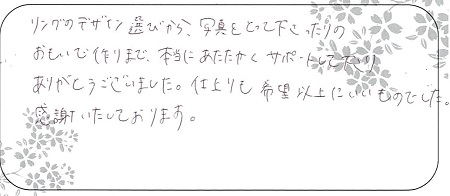 リングのデザイン選びから、写真をとって下さったりの
おもいで作りまで、本当にあたたかくサポートして下さり
ありがとうございました。仕上りも希望以上にいいものでした。
感謝いたしております。